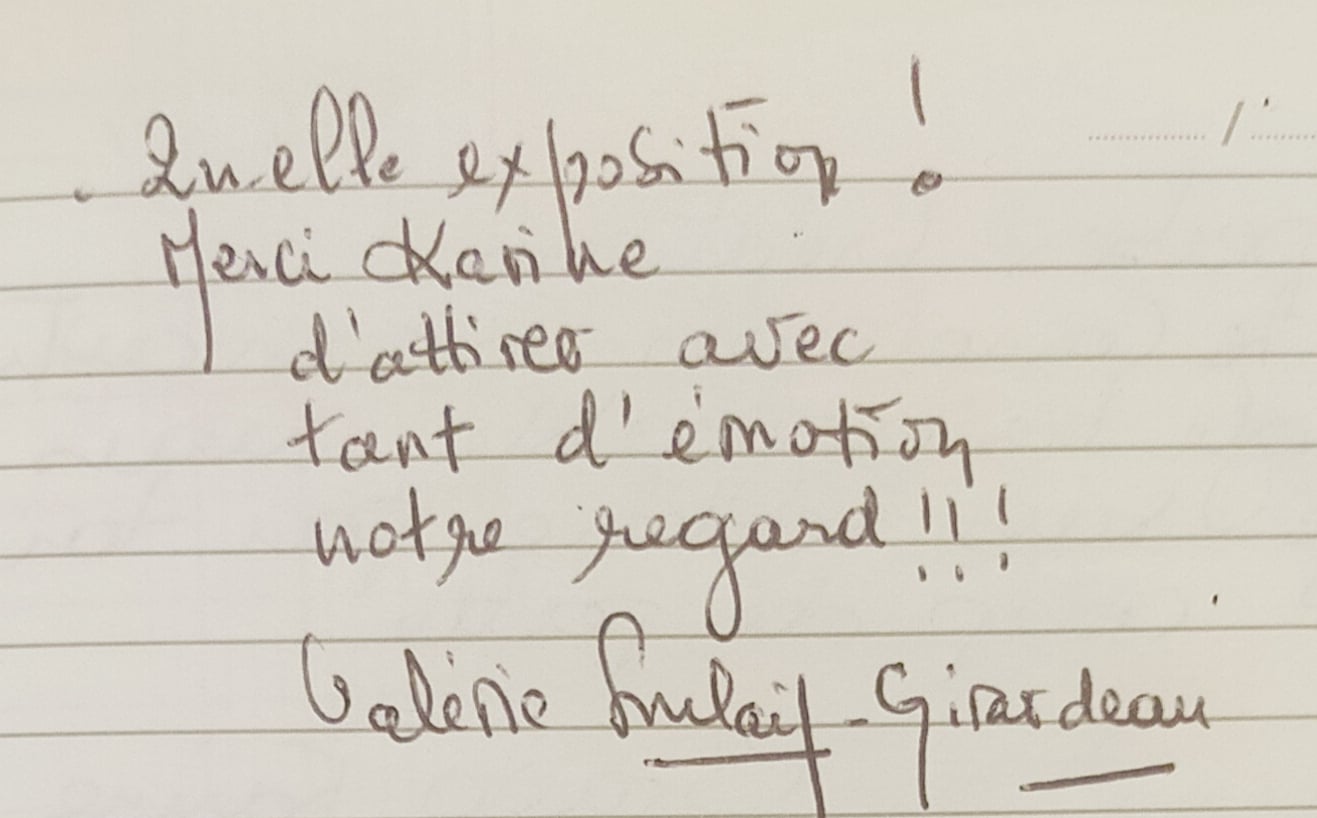 Quelle exposition !
Merci Karine
d'attirer avec
tant d'émotion
notre regard !!!
Valérie -Girardeau